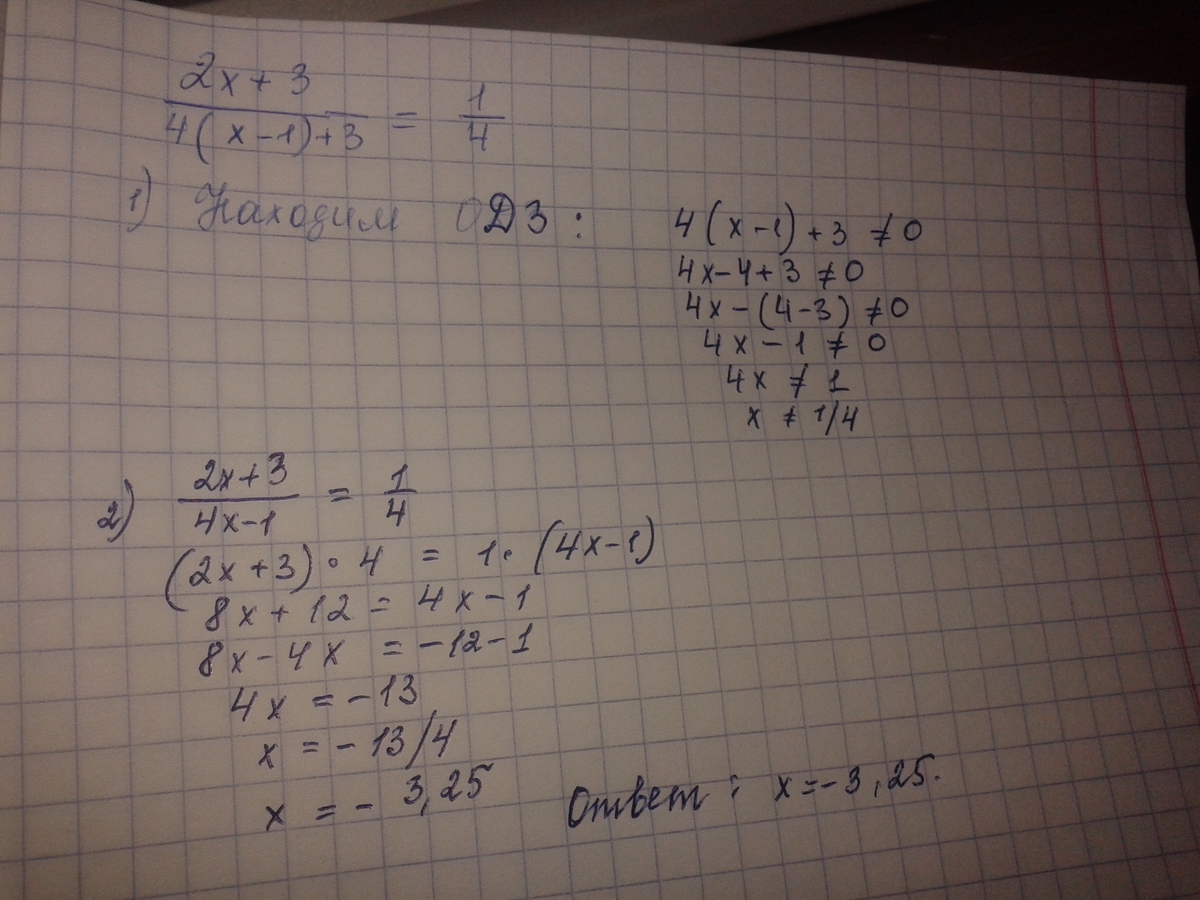 2x+3 / 4(x-1)+3 = 1/4
1) Находим ОДЗ: 4(x-1)+3 ≠0
4x-4+3 ≠0
4x-(4-3) ≠0
4x-1 ≠ 0
4x ≠ 1
x ≠ 1/4
2) 2x+3 / 4x-1 = 1/4
(2x+3)·4 = 1·(4x-1)
8x+12 = 4x-1
8x-4x = -12-1
4x = -13
x = -13/4
x = - 3,25
Ответ: x=-3,25.